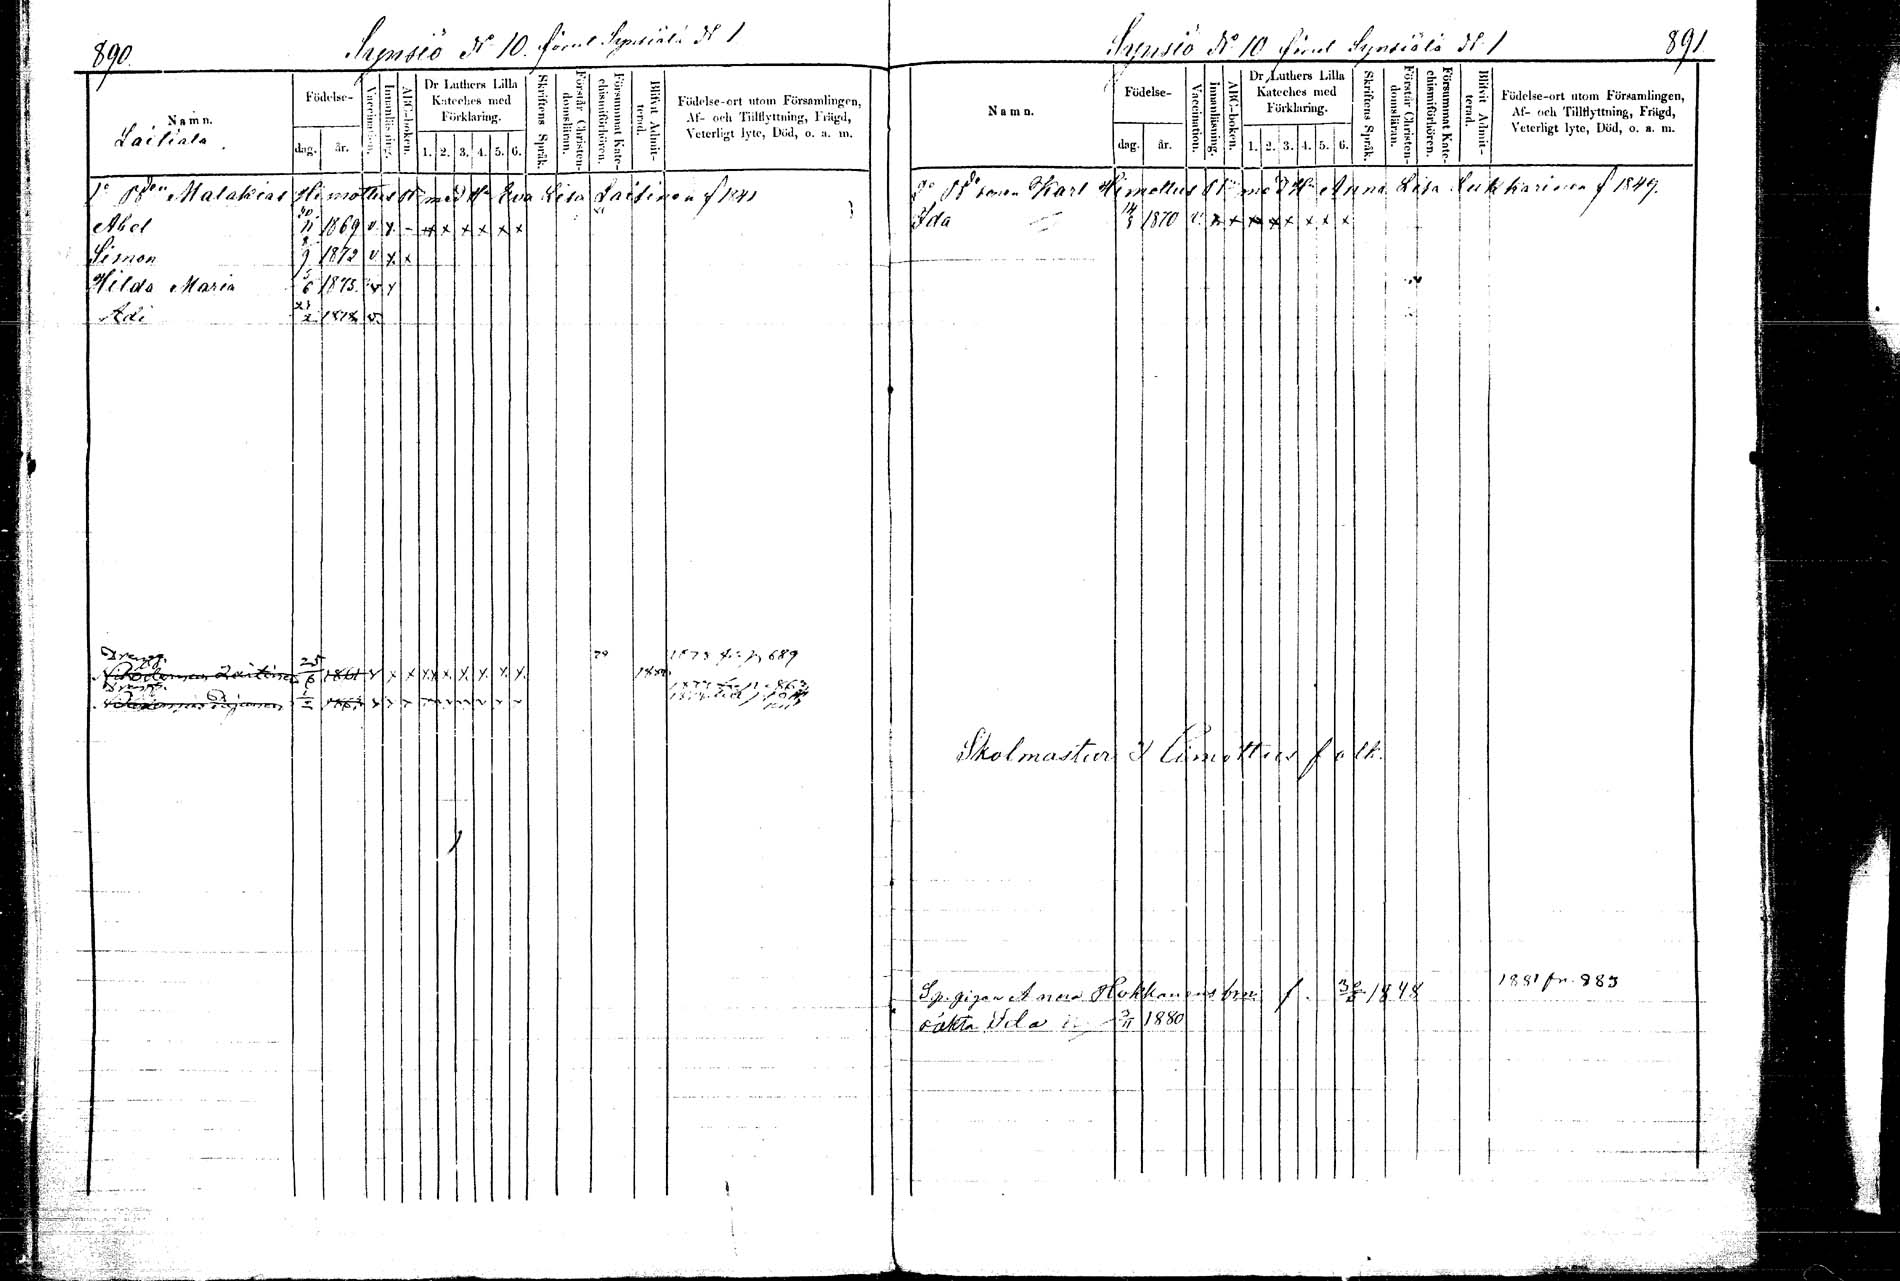 890.
Synsiö No 10. förut Synsiälä No 1
Namn.
Födelse-
dag.
år.
Vaccination.
Innanläsning.
ABC-boken.
Dr Luthers Lilla
Kateches med
Förklaring.
1. 2. 3. 4. 5. 6.
Skriftens Språk.
Förstår Christen-
domsläran.
Försummat Kate-
chismiförhören.
Blifvit Admit-
terad.
Födelse-ort utom Församlingen,
Af- och Tillflyttning, Frägd,
Veterligt lyte, Död, o. a. m.
Laitiala
1o Malakias Himottus med Hu Eva Lisa Laitinen f 1841
Abel 30/11 1869 v. x - x x x x x x
Simon 8/9 1872 v x x
Hilda Maria 5/6 1875. v x
Adi 23/2 1878 v.
Dreng. Laitinen 25/6 1861 v x x x x x x x x 79 1880 1878 fr. p 689
Dreng.
891
Synsiö No 10 förut Synsiälä No 1
Namn.
Födelse-
dag.
år.
Vaccination.
Innanläsning.
ABC-boken.
Dr Luthers Lilla
Kateches med
Förklaring.
1. 2. 3. 4. 5. 6.
Skriftens Språk.
Förstår Christen-
domsläran.
Försummat Kate-
chismiförhören.
Blifvit Admit-
terad.
Födelse-ort utom Församlingen,
Af- och Tillflyttning, Frägd,
Veterligt lyte, Död, o. a. m.
2o sonen Karl Himottus med Hu Anna Lisa Lukkarinen f 1849.
Ida 1870 v. x x x x x x x x
Skolmastur Himottus folk.
Sp. pigan Anna Hokkanens barn f. 1848 1881 fr. 883
oäkta Ida 2/11 1880